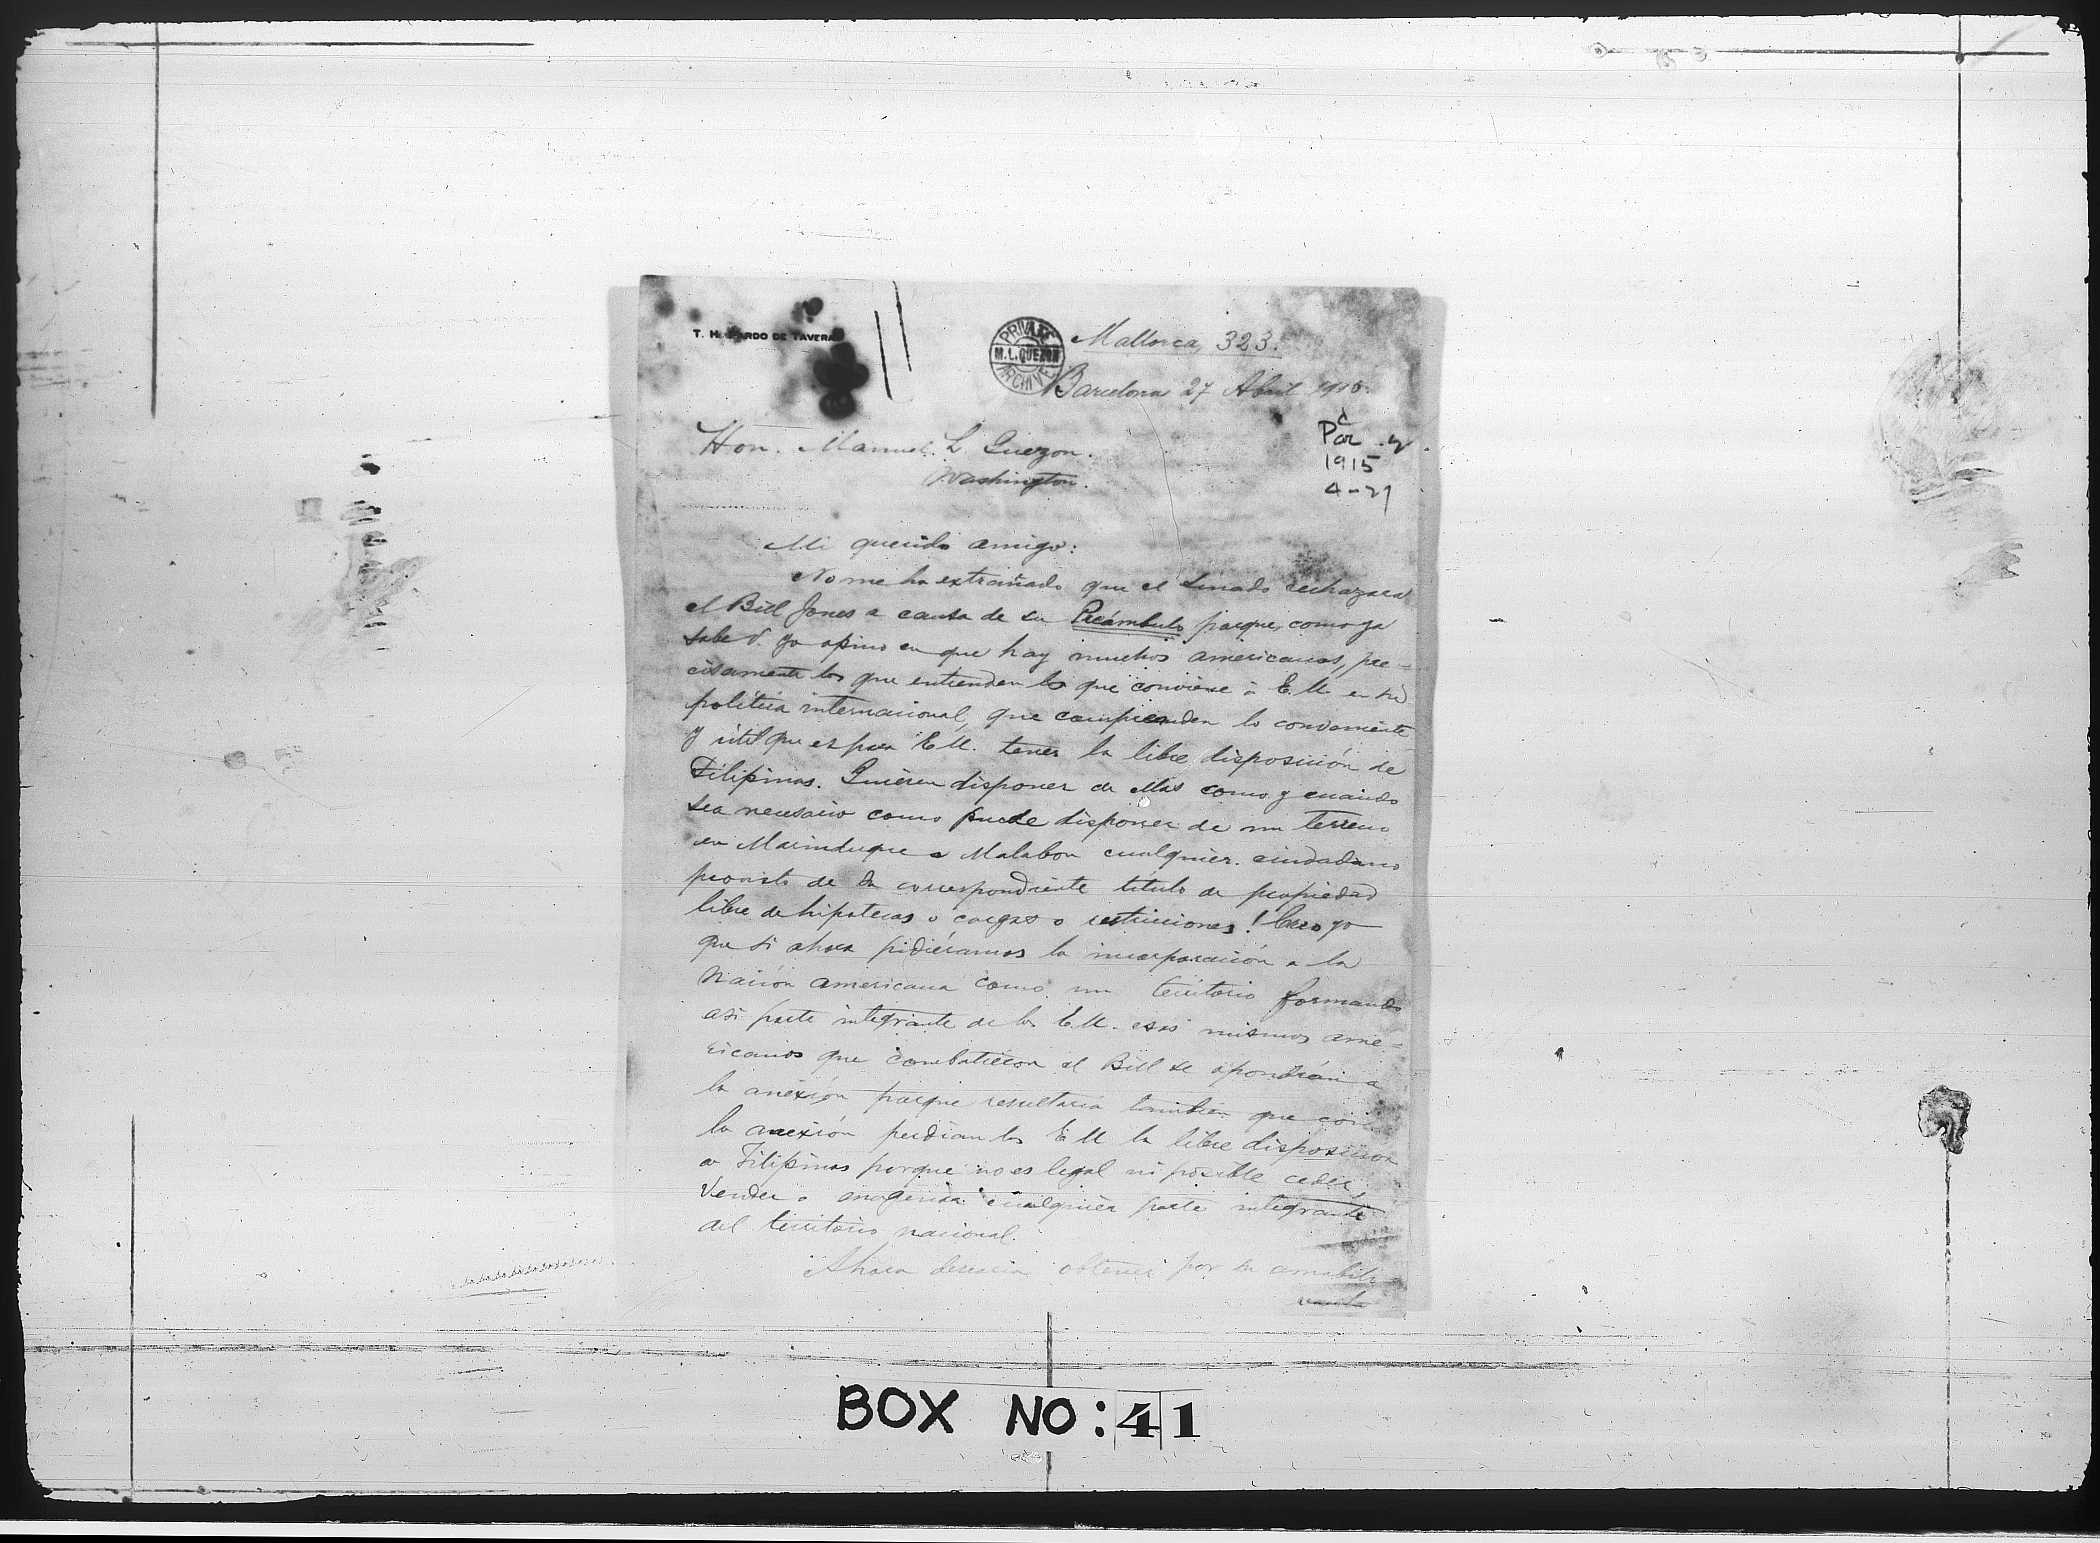 T. H. PARDO DE TAVERA
PRIVATE
M. L. QUEZON
ARCHIVE
Mallorca, 323.
Barcelona 27 Abril 1915.
Par
1915
4-27
Hon. Manuel L. Quezon.
Washington.
Mi querido amigo:
No me ha extrañado que el Senado rechazara
el Bill Jones a causa de su Preámbulo porque, como ya
sabe V. yo opino en que hay muchos americanos, pre-
cisamente los que entienden lo que conviene á E.U. en su
política internacional, que comprenden lo conveniente
y útil que es para E.U. tener la libre disposición de
Filipinas. Quieren disponer de ellas como y cuando
sea necesario como puede disponer de un terreno
en Marinduque o Malabon cualquier ciudadano
provisto de su correspondiente título de propiedad
libre de hipotecas o cargas o restricciones! Creo yo
que si ahora pidiéramos la incorporación a la
Nación americana como un territorio formando
asi parte integrante de los E.U. esos mismos ame-
ricanos que combatieron el Bill se opondrán a
la anexión porque resultaria tambien que con
la anexión perdian los E U la libre disposicion
de Filipinas porque no es legal ni posible ceder,
vender o enagenar cualquier parte integrante
del territorio nacional.
Ahora desearia obtener por su amabili-
BOX NO: 41